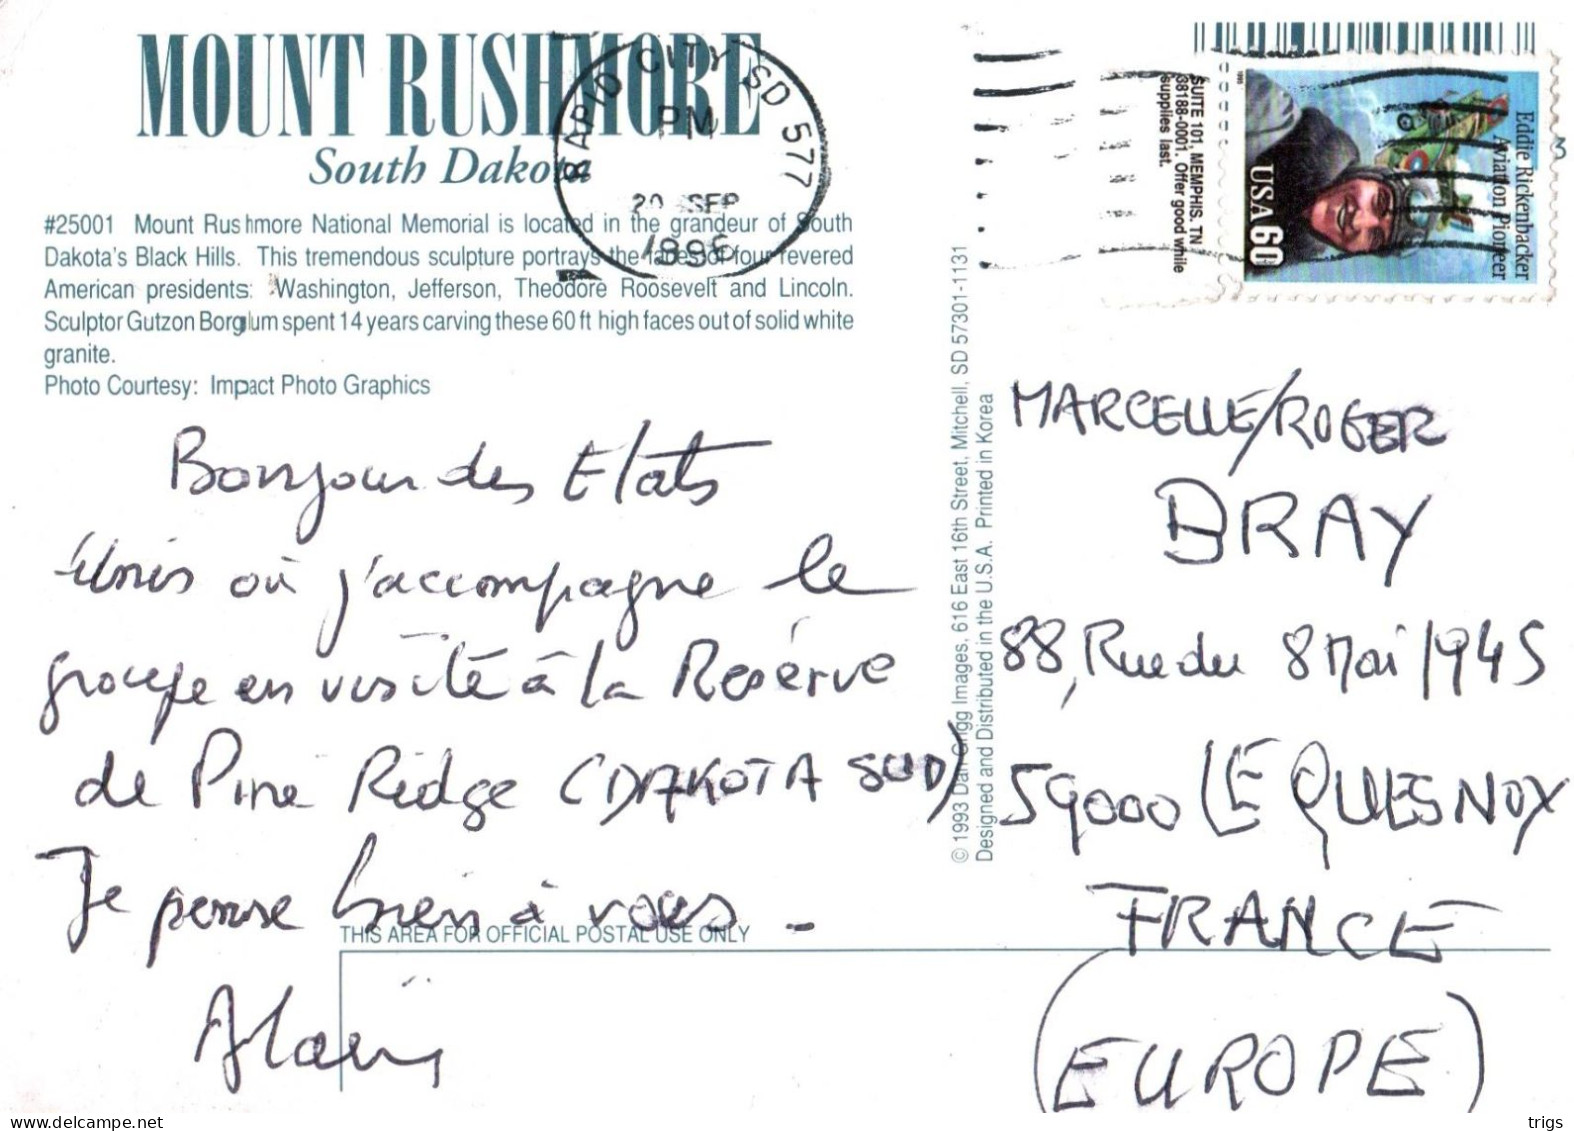 MOUNT RUSHMORE
South Dakota
#25001 Mount Rushmore National Memorial is located in the grandeur of South
Dakota's Black Hills. This tremendous sculpture portrays the faces of four revered
American presidents: Washington, Jefferson, Theodore Roosevelt and Lincoln.
Sculptor Gutzon Borglum spent 14 years carving these 60 ft high faces out of solid white
granite.
Photo Courtesy: Impact Photo Graphics
RAPID CITY SD 577
PM
20 SEP
1996
Bonjour des Etats
Unis où j'accompagne le
groupe en visite à la Reserve
de Pine Ridge (DAKOTA SUD)
Je pense bien à vous -
Alain
THIS AREA FOR OFFICIAL POSTAL USE ONLY
© 1993 Dan Grigg Images, 616 East 16th Street, Mitchell, SD 57301-1131
Designed and Distributed in the U.S.A. Printed in Korea
SUITE 101, MEMPHIS, TN
38188-0001. Offer good while
supplies last.
1995
USA 60
Eddie Rickenbacker
Aviation Pioneer
3
MARCELLE/ROGER
BRAY
88, Rue du 8 Mai 1945
59000 LE QUESNOY
FRANCE
(EUROPE)
delcampe.net
trigs